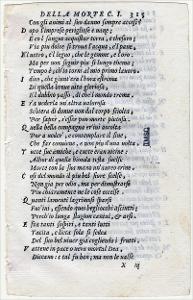 DELLA MORTE C. I. 325
Con gli animi al suo danno sempre accesi?
D opo l'imprese perigliose e vane;
E co'l sangue acquistar terra, e thesoro;
Via più dolce si trova l'acqua, e'l pane,
E'l vetro, e'l legno, che le gemme, e l'oro:
Ma per non seguir più sì lungo thema,
Tempo è, ch'io torni al mio primo lavoro.
I dico, che giunta era l'hora estrema
Di quella breve vita gloriosa,
E'l dubbio passo, di che'l mondo trema;
E ra a vederla un'altra valorosa
Schiera di donne non dal corpo sciolta,
Per saper, s'esser può morte pietosa.
Q uella bella compagna er'ivi accolta
Pur a veder, e contemplar il fine,
Che far convene, e non più d'una volta.
T utte sue amiche, e tutte eran vicine;
Allhor di quella bionda testa svelse
Morte con la sua mano un'aureo crine.
C osì del mondo il più bel fiore scelse;
Non già per odio, ma per dimostrarsi
Più chiaramente ne le cose eccelse.
Q uanti lamenti lagrimosi sparsi
Fur'ivi, essendo quei begliocchi asciutti;
Perch'io lunga stagion cantai, & arsi.
E fra tanti sospiri, e tanti lutti
Tacita, e lieta sola si sedea
Del suo bel viver già cogliendo i frutti.
V attene in pace o vera mortal Dea,
Diceano: e tal fu ben; ma non le valse
X iij